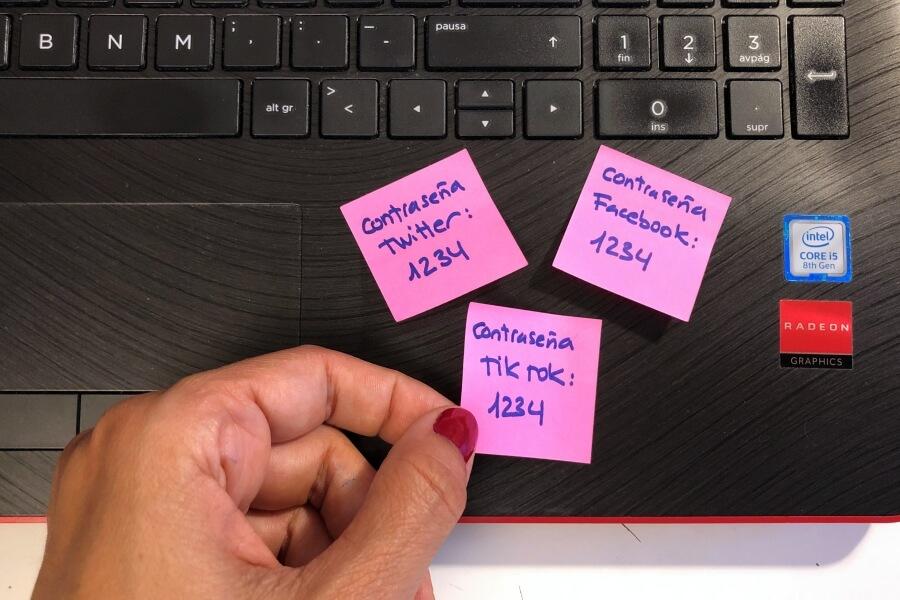 B N M ; , : . _ - pausa ↑ 1 fin 2 ↓ 3 avpág
alt gr > < ◄ ▲ ▼ ► 0 ins . supr
contraseña
Twitter:
1234
contraseña
Facebook:
1234
contraseña
Tik Tok:
1234
intel
CORE i5
8th Gen
RADEON
GRAPHICS